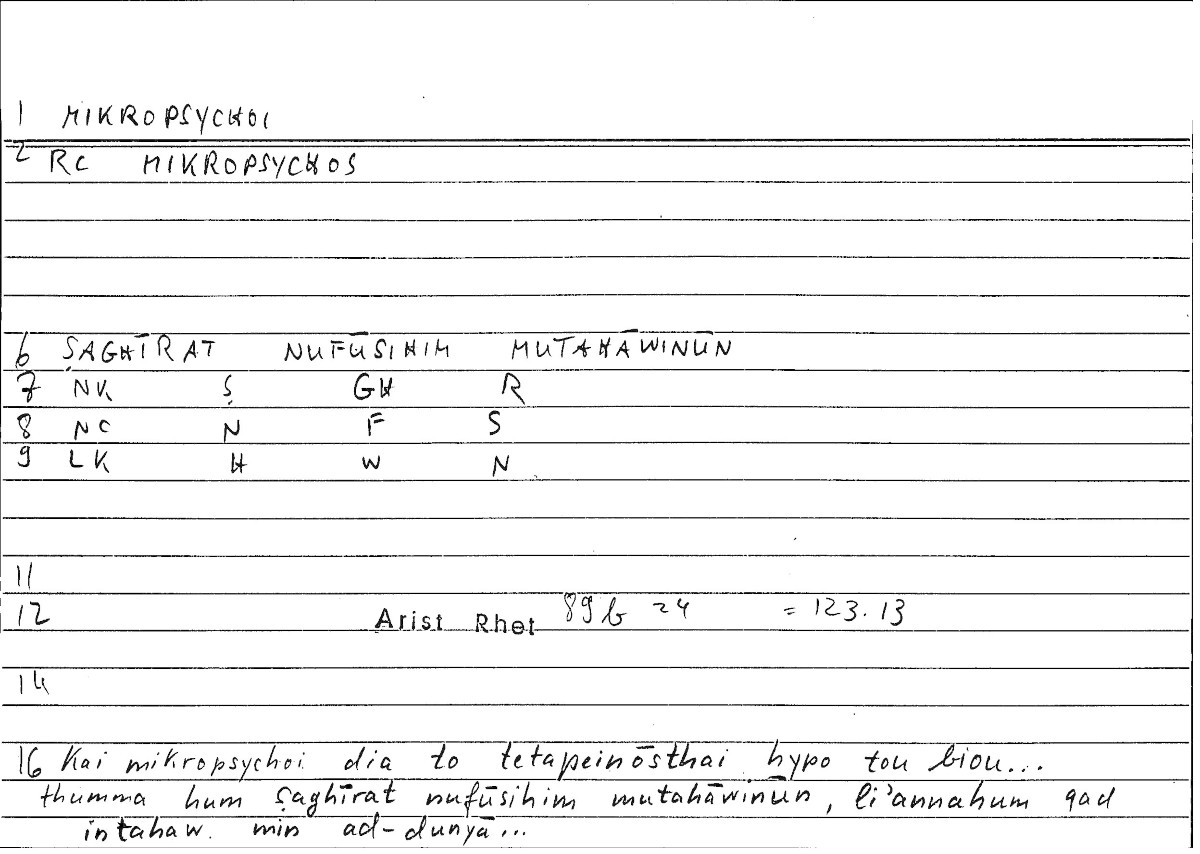 1 MIKROPSYCHOI
2 Rc MIKROPSYCHOS
6 ṢAGHĪRAT NUFŪSIHIM MUTAHĀWINŪN
7 NK Ṣ GH R
8 NC N F S
9 LK H W N
11
12 Arist Rhet 89b 24 = 123.13
14
16 Kai mikropsychoi dia to tetapeinōsthai hypo tou biou...
thumma hum ṣaghīrat nufūsihim mutahāwinūn, li'annahum qad
intahaw. min ad-dunyā...